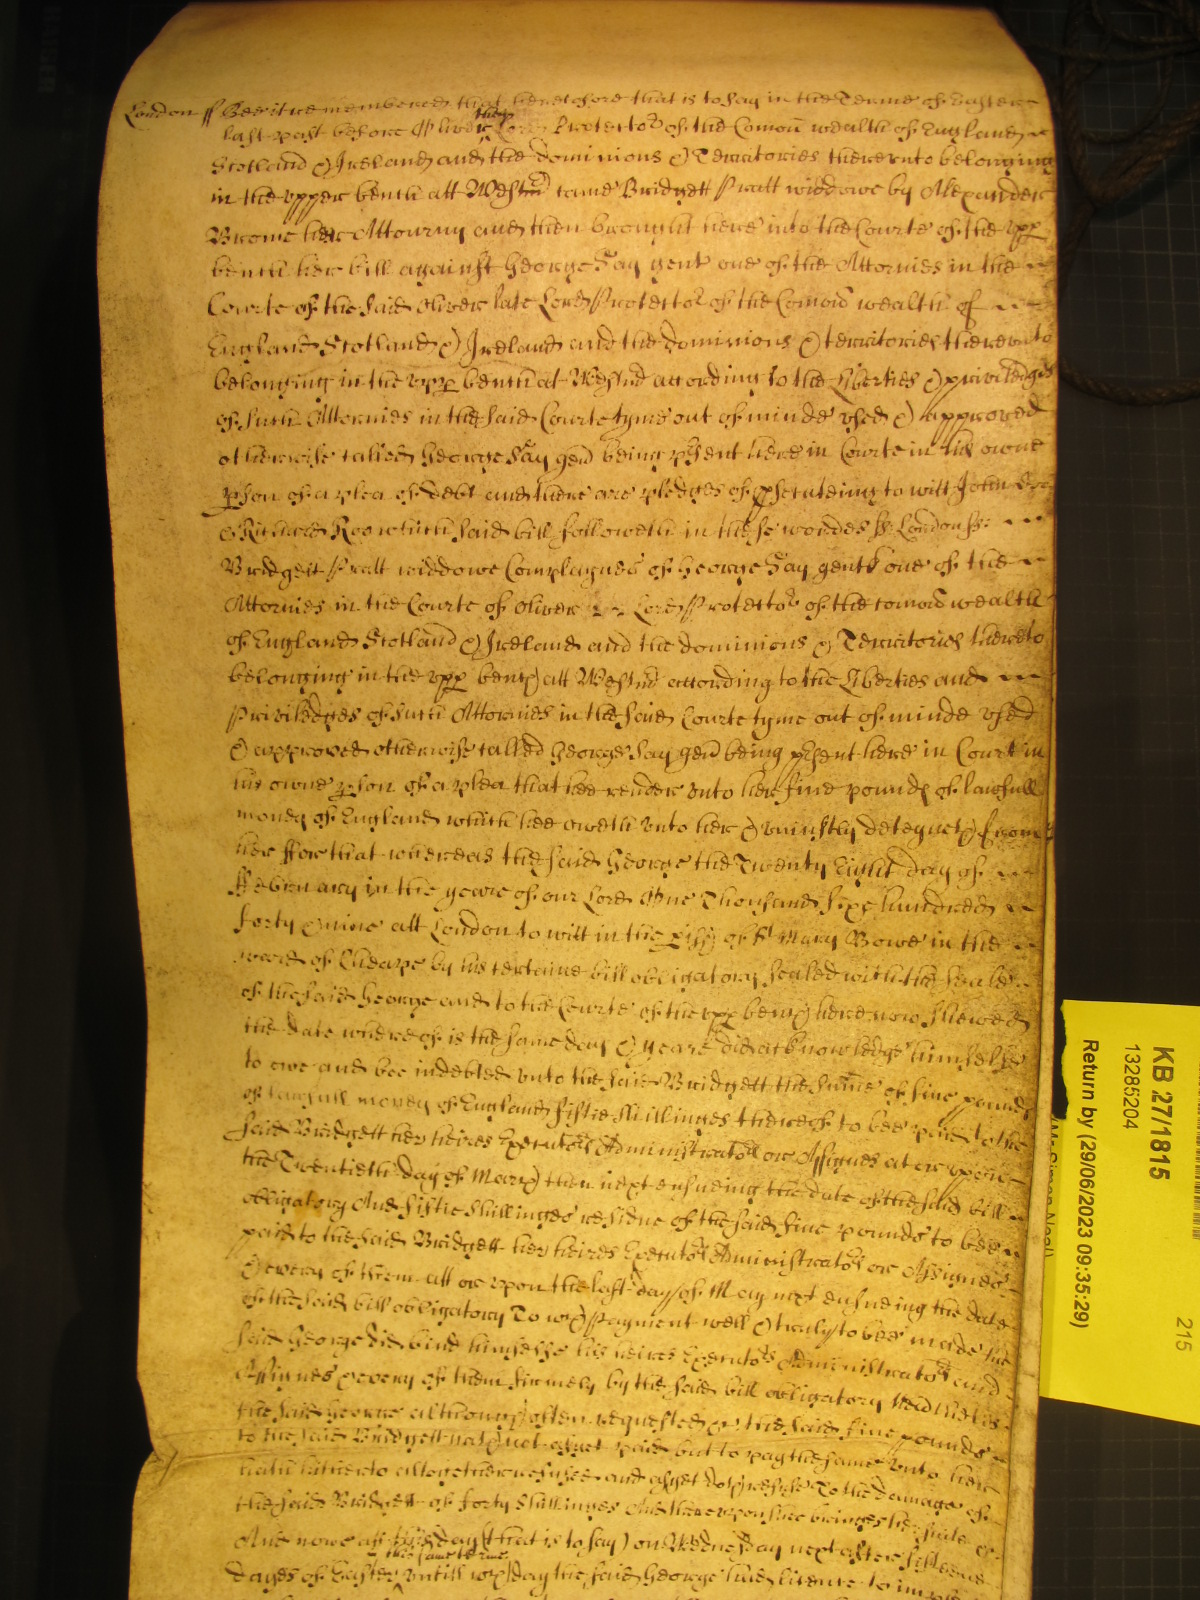 London ss Bee it remembered that heretofore that is to say in the Terme of Easter
last past before Oliver then late Lord Protector of the Comon wealth of England
Scotland & Ireland and the dominions & Territories thereunto belonging
in the vpper bench att Westmr came Bridgett Pratt widdowe by Alexander
Brome her Attourny and then brought here into the Courte of the vpp
bench her bill against George Say gent one of the Attornies in the
Courte of the said Oliver late Lord Protector of the Comon wealth of
England Scotland & Ireland and the dominions & territories thereunto
belonging in the vpp bench at Westmr according to the Liberties & priviledges
of such Attornies in the said Courte tyme out of minde vsed & approved
otherwise called George Say gen being psent here in Courte in his owne
pson of a plea of debt and there are pledges of psecuteing to witt John Doe
& Richard Roo which said bill followeth in these wordes ss London ss
Bridgett Pratt widdowe Complaynes of George Say gent one of the
Attornies in the Courte of Oliver Lord Protector of the comon wealth
of England Scotland & Ireland and the dominions & Territories thereto
belonging in the vpp bench att Westmr according to the Liberties and
Priviledges of such Attornies in the said Courte tyme out of minde vsed
& approved otherwise called George Say gen being psent here in Court in
his owne pson of a plea that hee render vnto her five pounds of lawfull
money of England which hee oweth vnto her & vniustly deteyneth from
her ffor that whereas the said George the Twenty Eight day of
ffebruary in the yeare of our Lord One Thousand sixe hundred
forty & nine att London to witt in the pish of St Mary Bowe in the
ward of Cheape by his certaine bill obligatory sealed with the seale
of the said George and to the Courte of the vpp bench here now shewed
the date whereof is the same day & yeare did acknowledge himselfe
to owe and bee indebted vnto the said Bridgett the sume of five pounds
of lawfull money of England fiftie shillinges thereof to bee paid to the
said Bridgett her heires Executors Administrators or Assignes at or vpon
the Twentieth day of March then next ensueing the date of the said bill
obligatory And fiftie shillinges residue of the said five pounds to bee
paid to the said Bridgett her heires Executors Administrators or Assignes
& every of them att or vpon the last day of May next ensueing the date
of the said bill obligatory To wch Payment well & truly to bee made the
said George did bind himselfe his heires Executors Administrators and
Assignes & every of them firmely by the said bill obligatory Neverthelesse
the said George although often requested & the said five pounds
to the said Bridgett hath not as yet paid but to pay the same vnto her
hath hitherto altogether refused and as yet doth refuse To the damage of
the said Bridgett of forty shillinges And therevpon shee bringes her suite &c
And nowe att this day (that is to say) on Wednesday next after fifteene
the same terme
dayes of Easter vntill wch day the said George had licence to imple
KB 27/1815
13285204
Return by (29/06/2023 09:35:29)
215